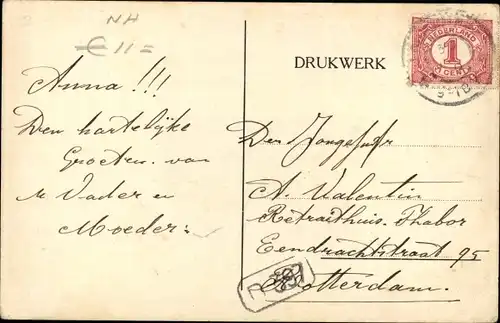 NH
€ 11 =
Anna!!!
Den hartelijke
Groeten. van
Vader en
Moeder
DRUKWERK
NEDERLAND
1
1 CENT
Den Jongejufr
A. Valentin
Retraithuis. Thabor
Eendrachtstraat 95
Rotterdam.